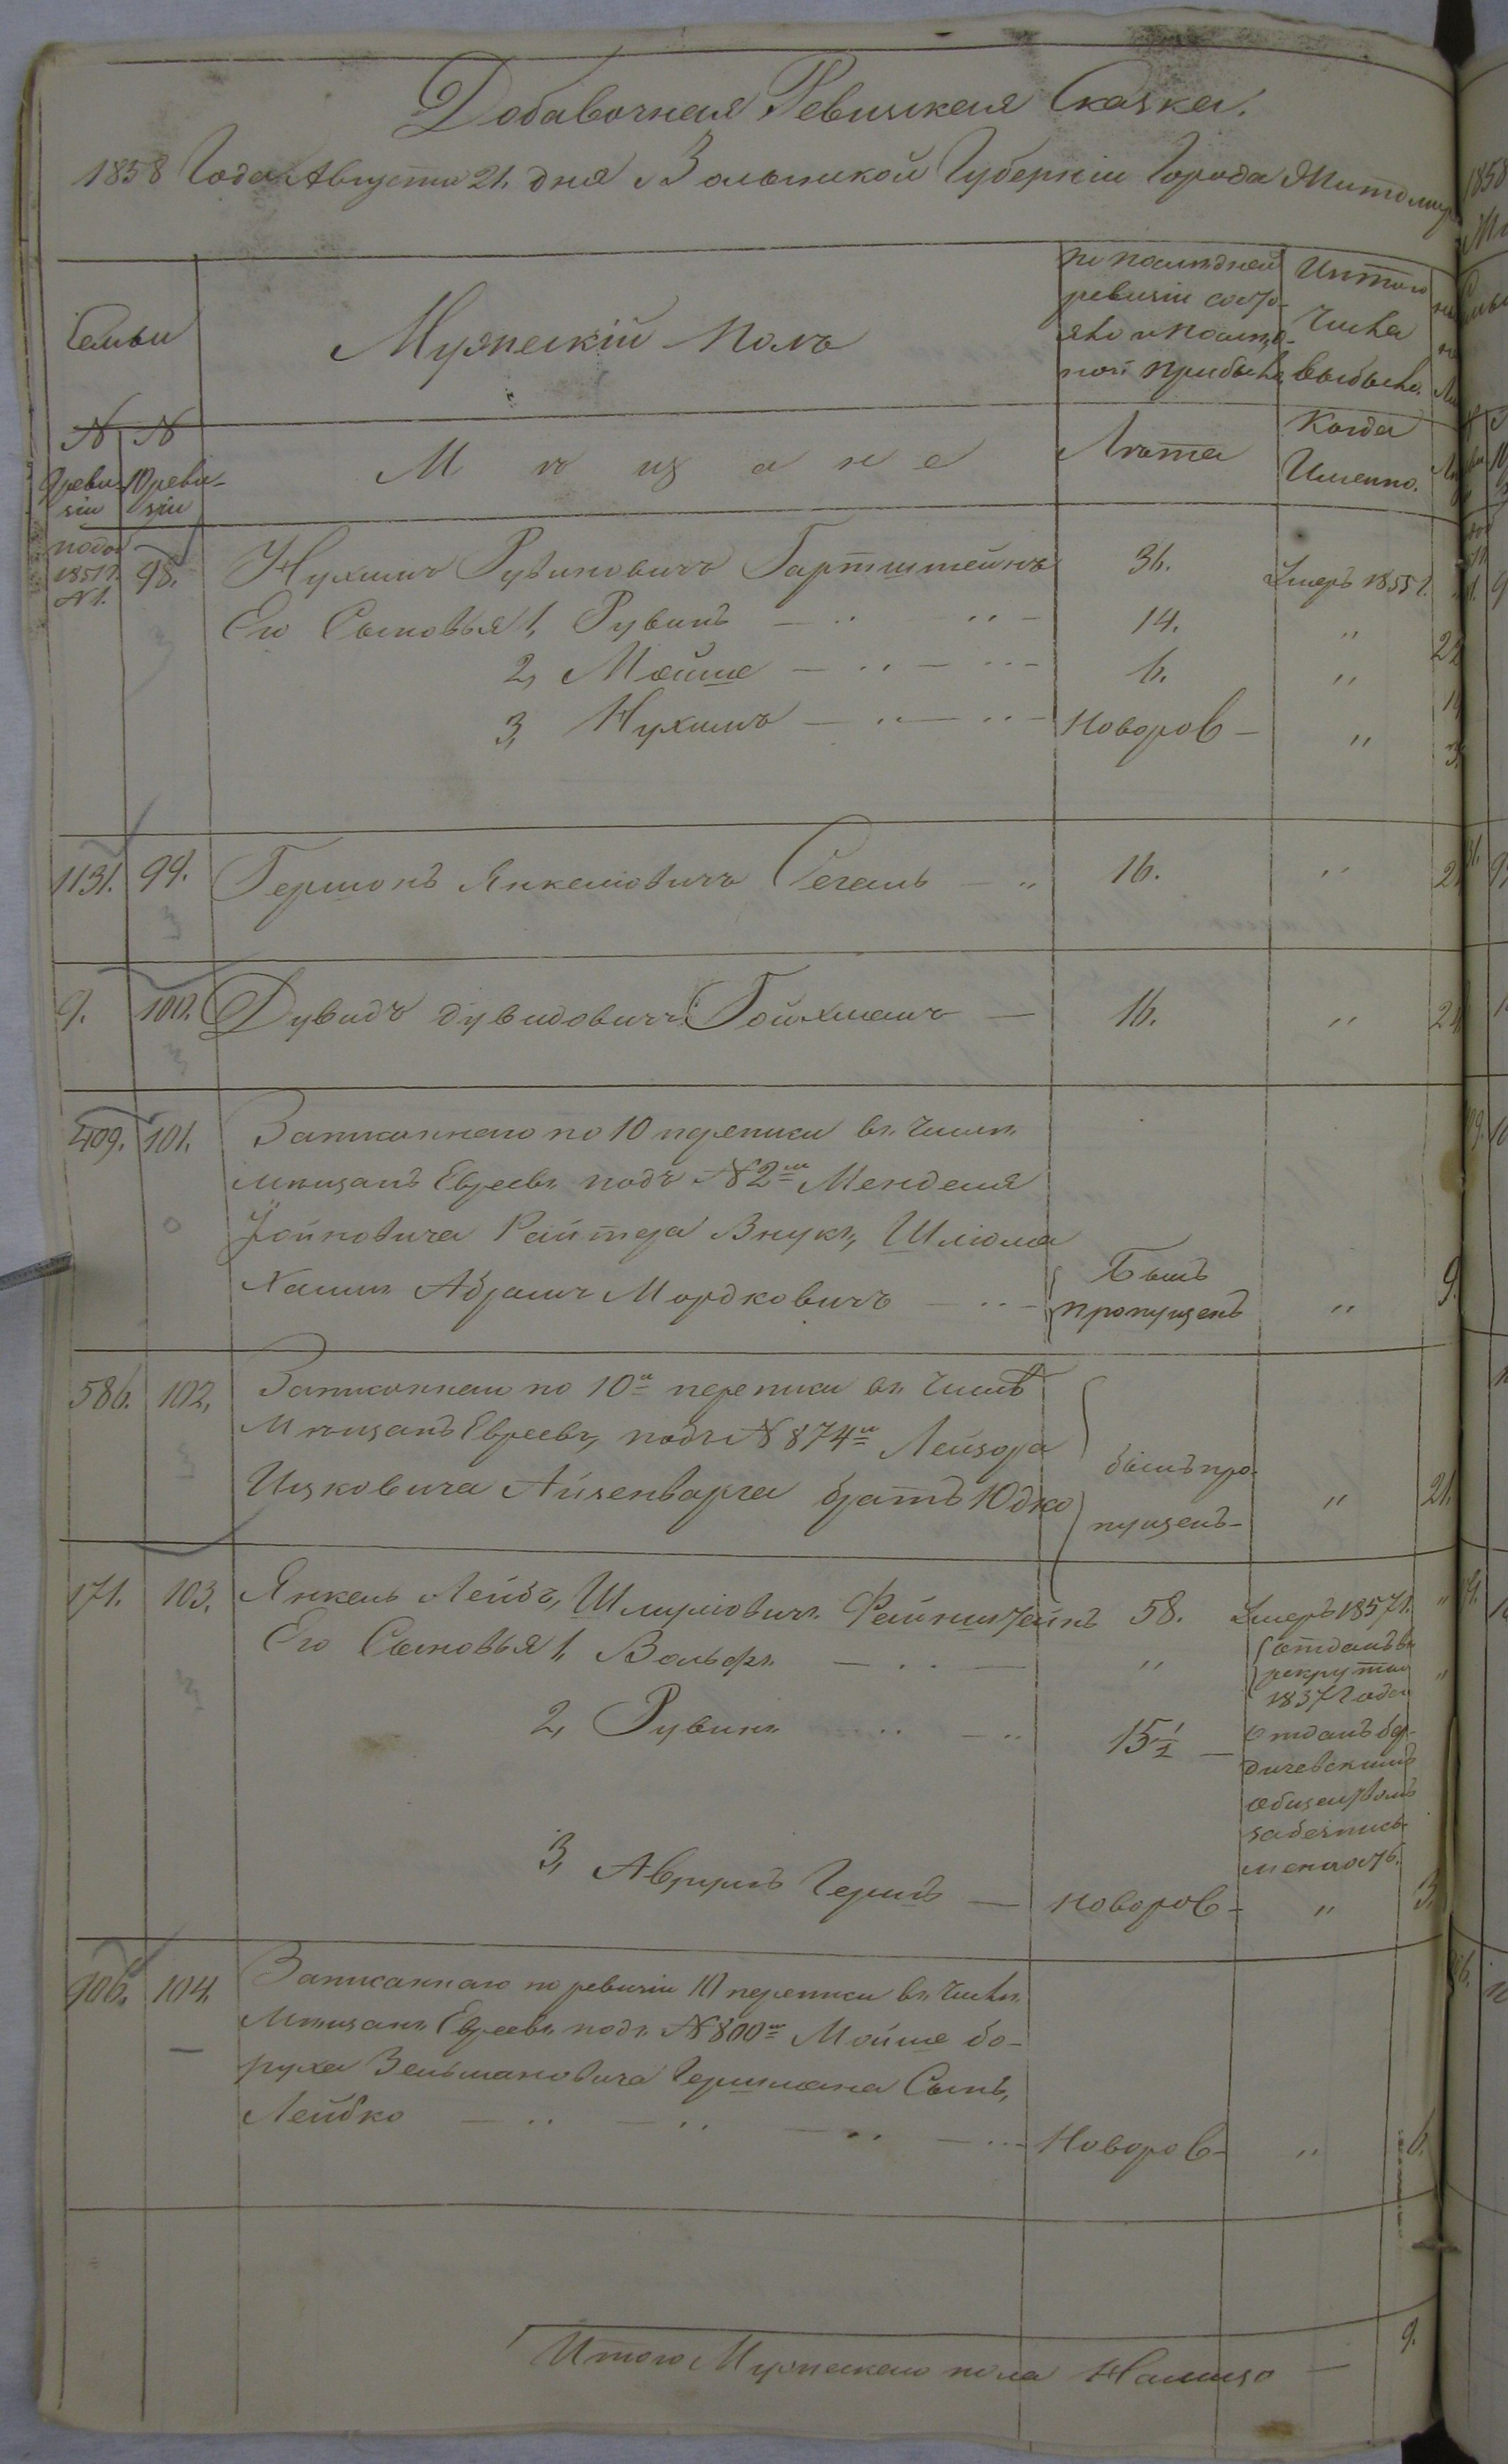 Добавочная Ревизская Сказка.
1858 Года Августа 21. дня Волынской Губерніи Города Житомир
Семьи
Мужескій Полъ
по последней
ревизіи состо-
яло и после о-
ной прибыло
Изтого
числа
выбыло.
N N
9 реви-
зіи
10 реви-
зіи
М ѣ щ а н е
Лѣта
Когда
Именно.
1851 г.
N 1.
98. Нухимъ Рувиновичъ Гартштейнъ 36. Умеръ 1855 г.
Его Сыновья 1, Рувинъ — " " — 14. " 22
2, Мойше — " — " — 6. " 14
3, Нухимъ — " — " — новорож — " 3
1131. 99. Гершонъ Янкелювичъ Сегаль — " 16. " 2
9. 100. Дувидъ Дувидовичъ Гойхманъ — 16. " 24
409. 101. Записаннаго по 10 переписи въ числѣ
мѣщанъ Евреевъ подъ N 2м Менделя
Райтера Внукъ, Шлюма
Хаимъ Абрамъ Мордковичъ — " — Былъ
пропущенъ " 9.
586. 102, Записаннаго по 10й переписи въ числѣ
Мѣщанъ Евреевъ, подъ N 874м Лейзора
Ицковича Айзенварга братъ Юдко
былъ про-
пущенъ — " 21.
171. 103. Янкель Лейбъ, Шмулювичъ Файнштейнъ 58. Умеръ 1857 г. "
Его Сыновья 1, Вольфъ — " — " отданъ въ
рекруты
1837 Года "
2, Рувинъ " — " 15½ — Отданъ бер-
дичевскимъ
обществомъ
за безпись-
менность.
3, Аврумъ Гершъ — новорож — " 3.
906. 104. Записаннаго по ревизіи 10 переписи въ числѣ
Мѣщанъ Евреевъ подъ N 800м Мойше Бо-
руха Зельмановича Гершмана Сынъ,
Лейбко — " — " — " — " Новорож — " 6.
Итого Мужескаго пола Налицо — 9.